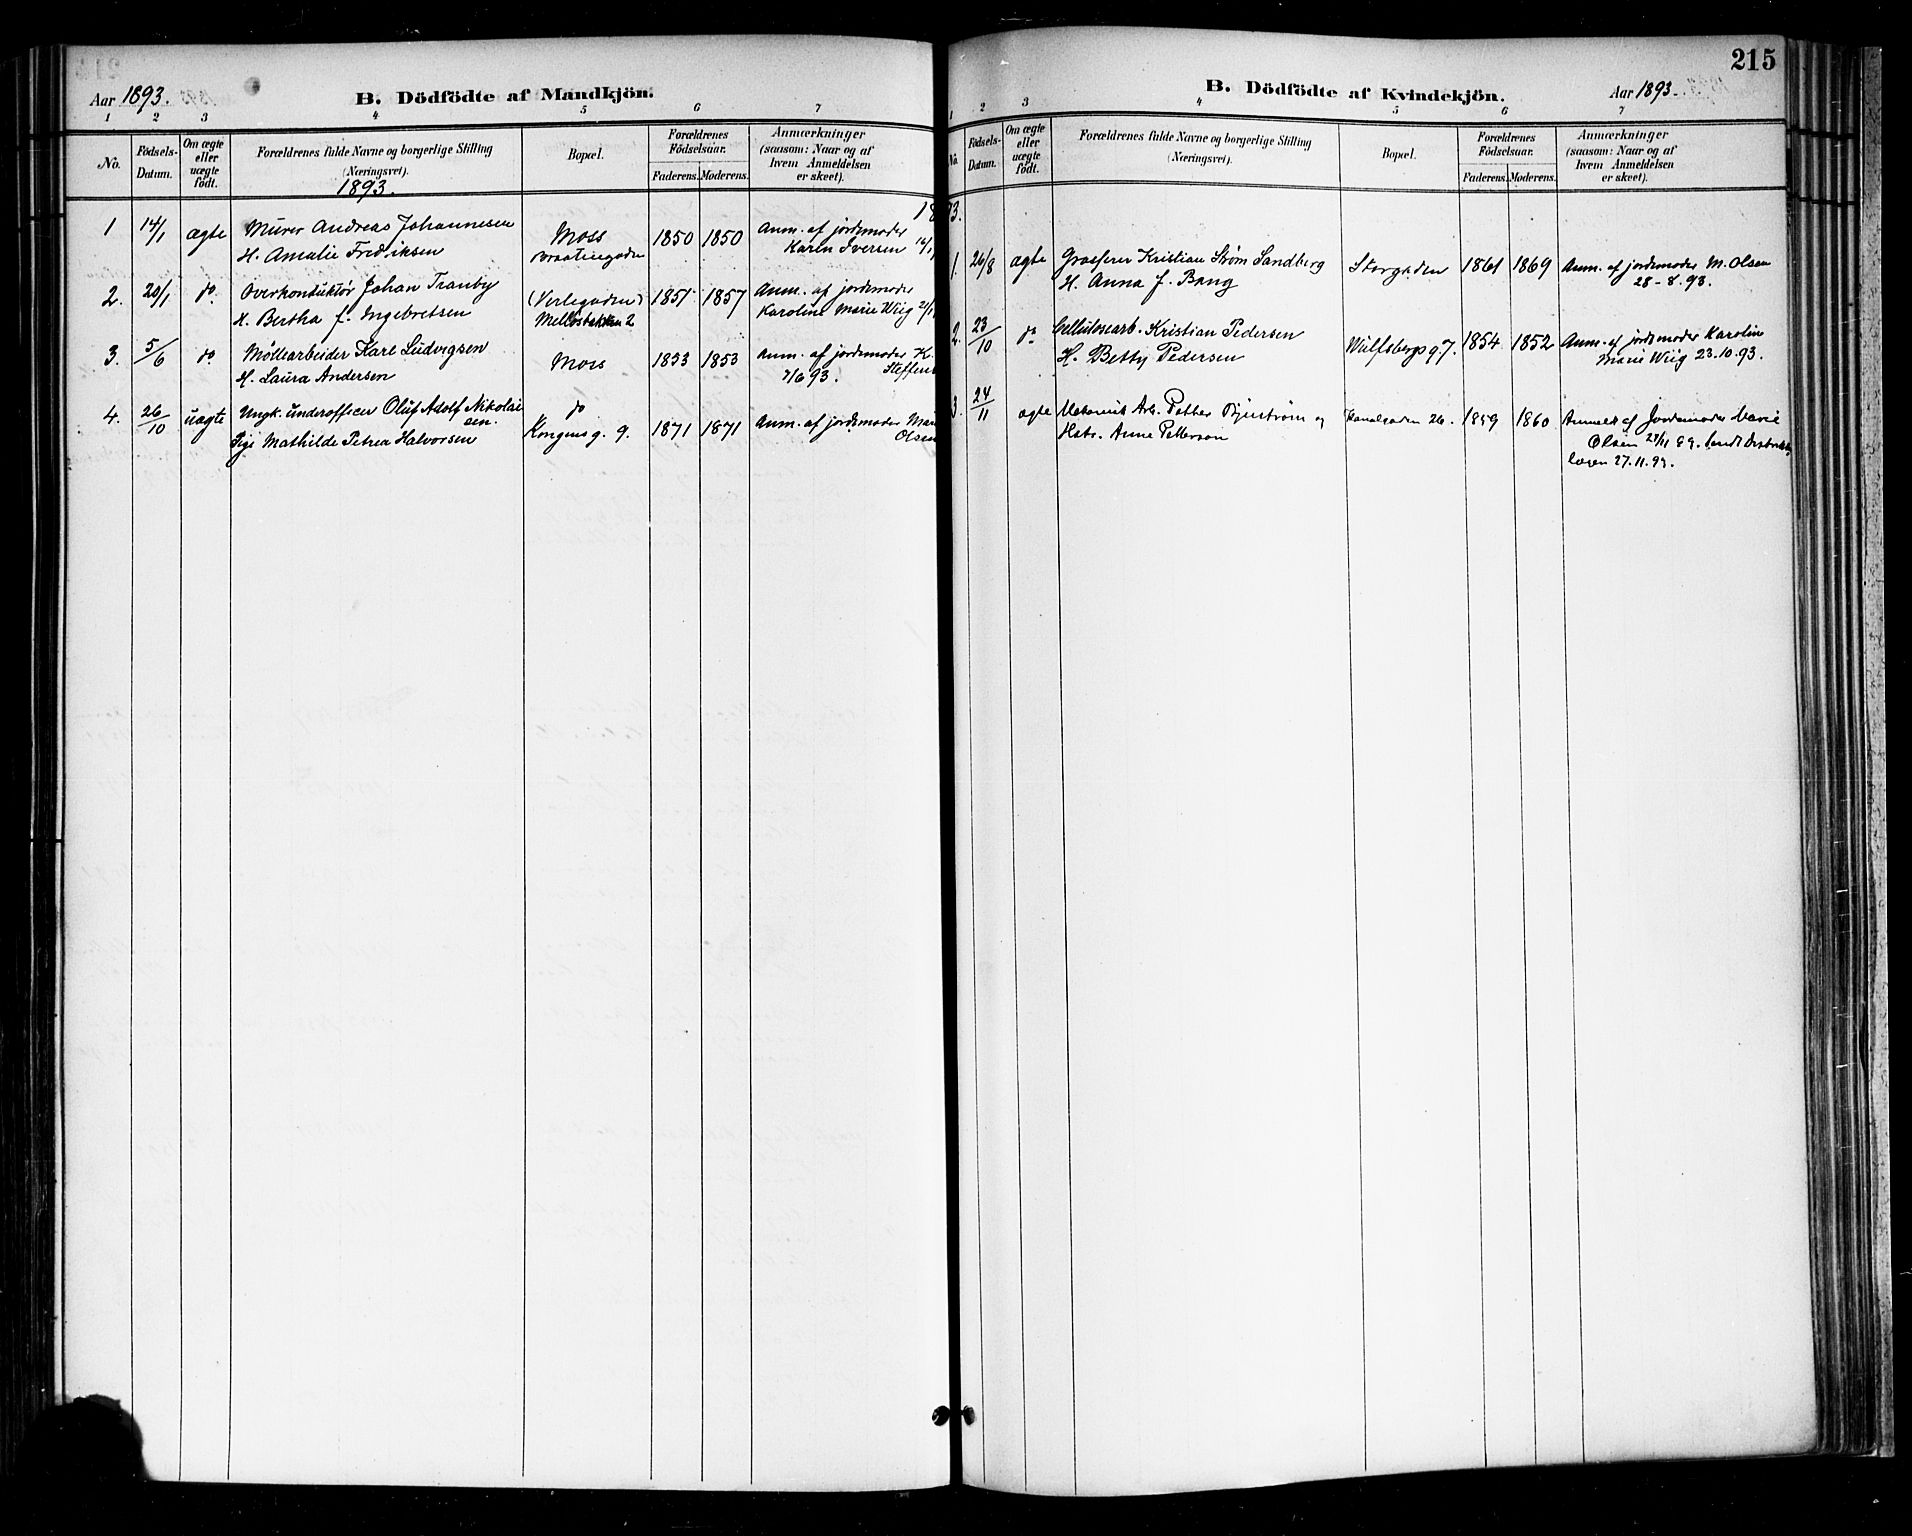 Aar 1893.
B. Dödfödte af Mandkjön.
1 2 3 4 5 6 7
No. Födsels-Datum. Om ægte eller uægte födt. Forældrenes fulde Navne og borgerlige Stilling (Næringsvei). Bopæl. Forældrenes Födselsaar. Faderens. Moderens. Anmærkninger (saasom: Naar og af hvem Anmeldelsen er skeet).
1893.
1 14/1 ægte Murer Andreas Johannesen Moss 1850 1850 Anm. af jordemoder
H. Amalie Fredriksen Braatengaden Karen Iversen 16/1
2. 20/1 do. Overkonduktør Johan Tranby (Verlegaden) 1851 1857 Anm. af jordemoder
H. Bertha f. Ingebretsen Melløsbakken 2 Karoline Marie Wiig 21/1
3. 5/6 do Møllearbeider Karl Ludvigsen Moss 1853 1853 Anm. af jordemoder K.
H. Laura Andersen 7/6 93. Steffens
4. 26/10 uægte Ungk. underofficer Oluf Adolf Nikolai
sen. do
Pige Mathilde Petrea Halvorsen Kongens g. 9. 1871 1871 Anm. af jordemoder Marie
Olsen
215
B. Dödfödte af Kvindekjön.
Aar 1893.
1 2 3 4 5 6 7
No. Födsels-Datum. Om ægte eller uægte födt. Forældrenes fulde Navne og borgerlige Stilling (Næringsvei). Bopæl. Forældrenes Födselsaar. Faderens. Moderens. Anmærkninger (saasom: Naar og af hvem Anmeldelsen er skeet).
1893.
1. 26/8 ægte Grosserer Kristian Strøm Sandberg Storgaden 1861 1869 Anm. af jordemoder M. Olsen
H. Anna f. Bang 28-8.93.
2. 23/10 do Cellulosearb. Kristian Pedersen Wulfsbergs g. 7. 1854 1852 Anm. af jordemoder Karoline
H. Betty Pedersen Marie Wiig 23.10.93.
3. 24/11 ægte Arb. Petter og Kanalgaden 26. 1859 1860 Anmeldt af Jordemoder Marie
Hstr. Anne Petterson Olsen 27/11 93. Sendt Distrikts
lægen 27.11.93.